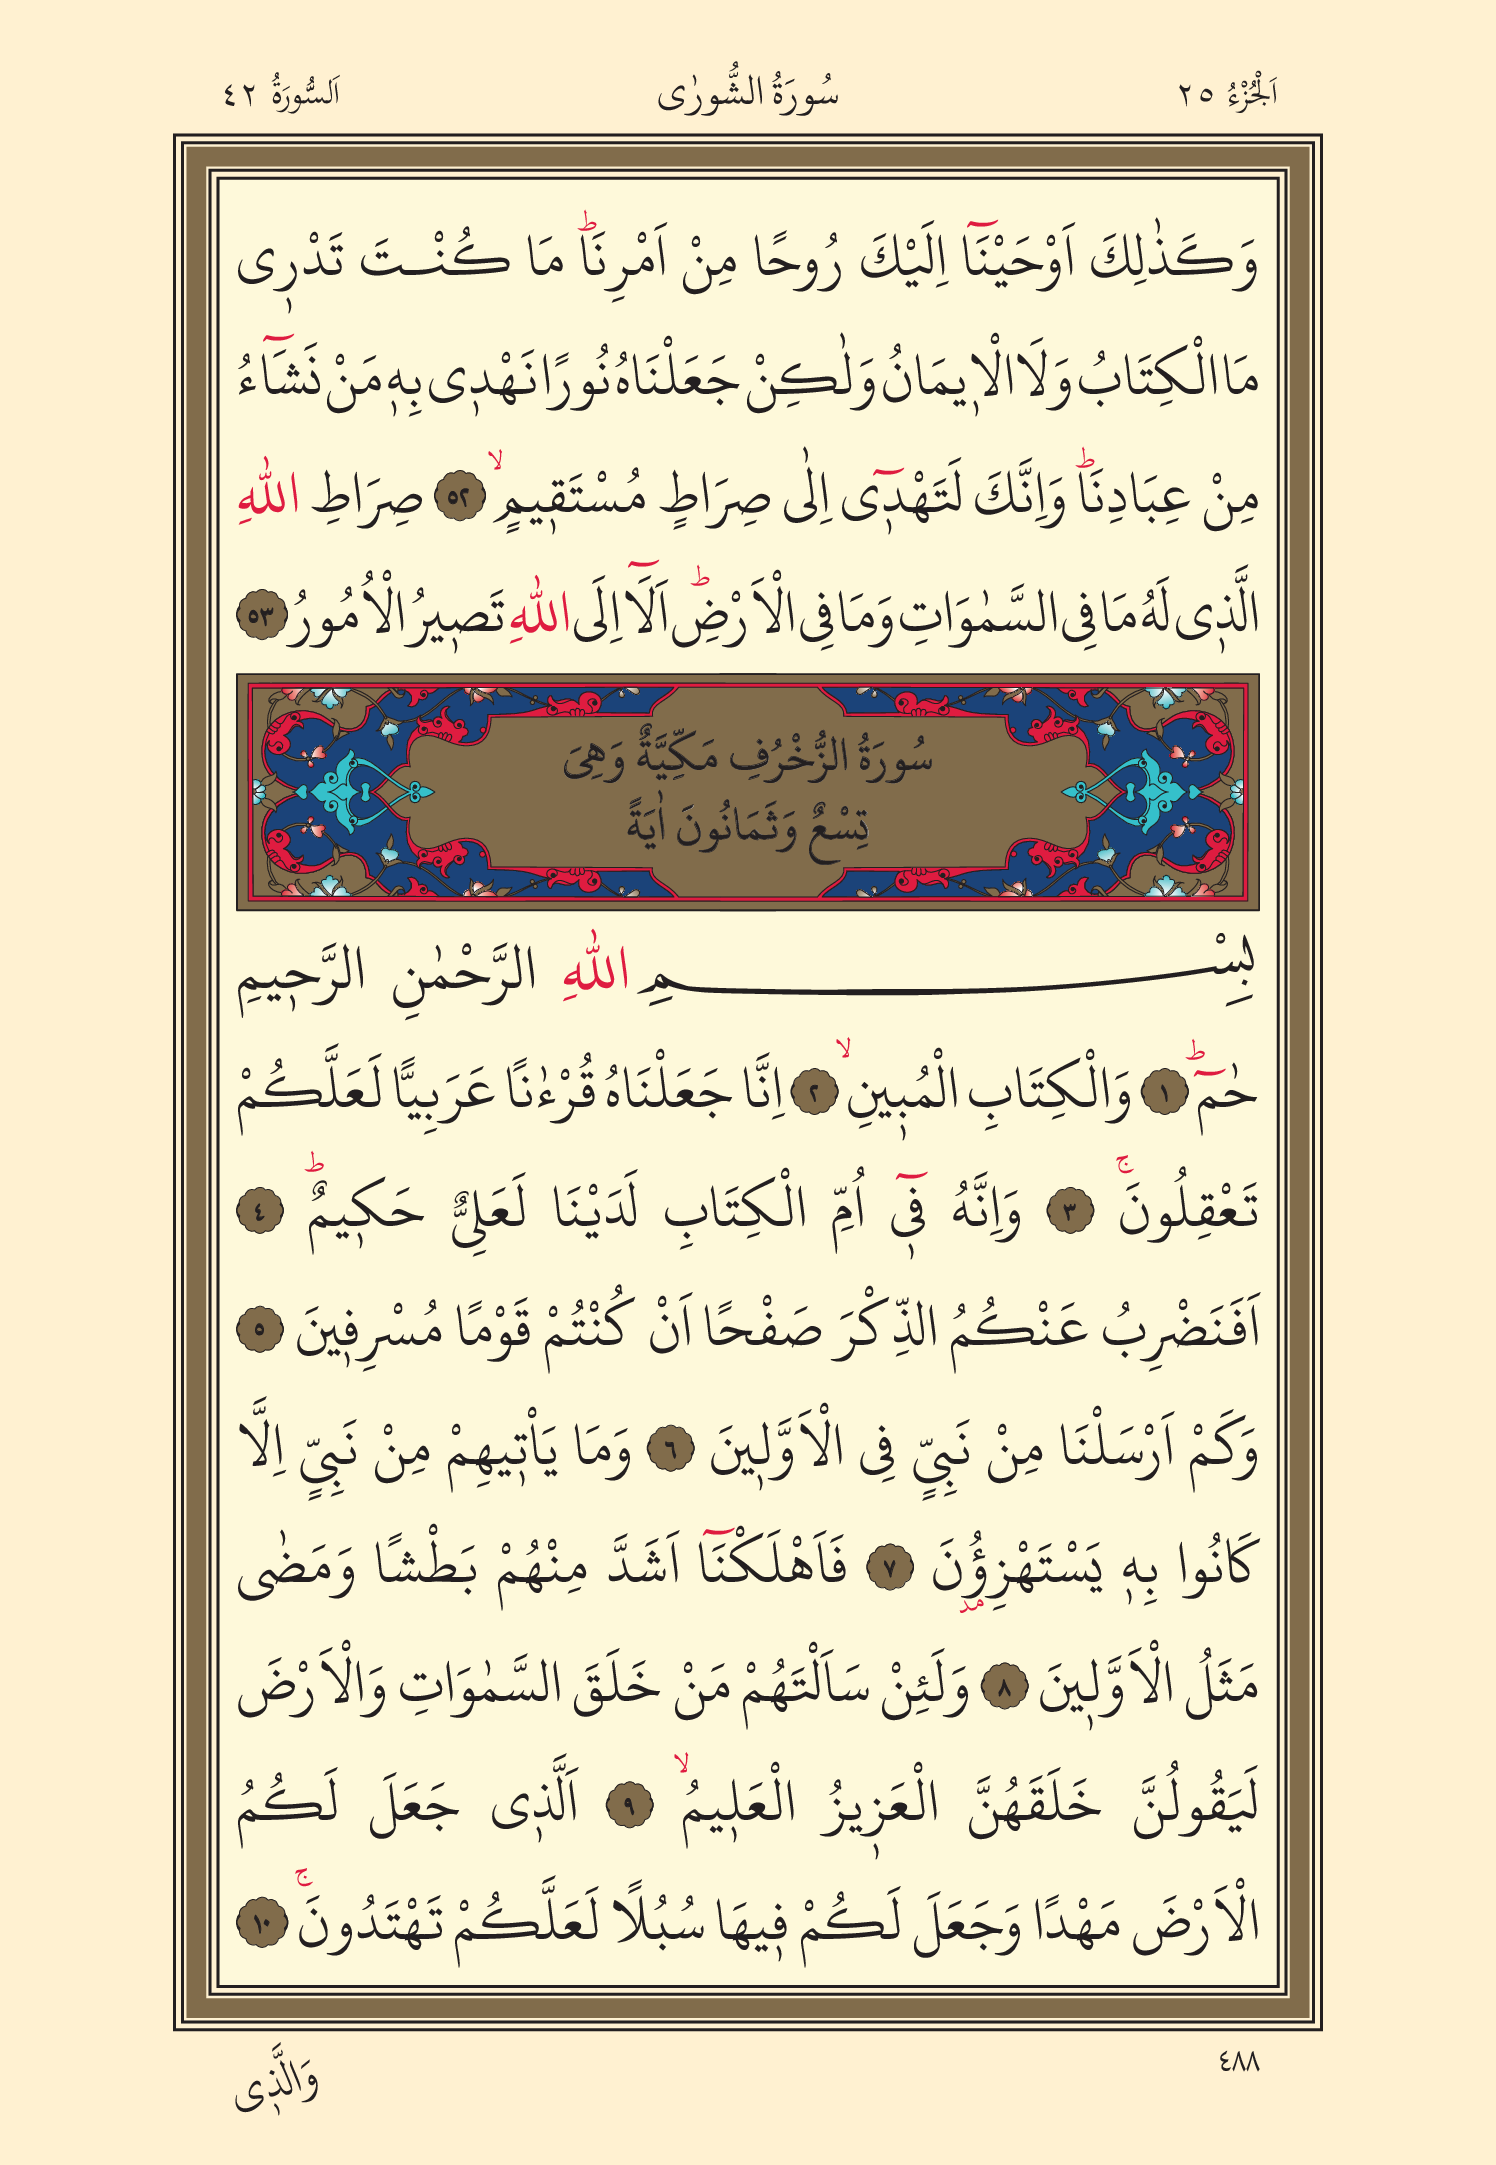 اَلْجُزْءُ ٢٥
سُورَةُ الشُّورٰى
اَلسُّورَةُ ٤٢
وَكَذٰلِكَ اَوْحَيْنَٓا اِلَيْكَ رُوحًا مِنْ اَمْرِنَاۜ مَا كُنْتَ تَدْر۪ى
مَا الْكِتَابُ وَلَا الْا۪يمَانُ وَلٰكِنْ جَعَلْنَاهُ نُورًا نَهْد۪ى بِه۪ مَنْ نَشَٓاءُ
مِنْ عِبَادِنَاۜ وَاِنَّكَ لَتَهْد۪ٓى اِلٰى صِرَاطٍ مُسْتَق۪يمٍۙ ٥٢ صِرَاطِ اللّٰهِ
الَّذ۪ى لَهُ مَا فِى السَّمٰوَاتِ وَمَا فِى الْاَرْضِۜ اَلَٓا اِلَى اللّٰهِ تَص۪يرُ الْاُمُورُ ٥٣
سُورَةُ الزُّخْرُفِ مَكِّيَّةٌ وَهِىَ
تِسْعٌ وَثَمَانُونَ اٰيَةً
بِسْمِ اللّٰهِ الرَّحْمٰنِ الرَّح۪يمِ
حٰمٓۜ ١ وَالْكِتَابِ الْمُب۪ينِۙ ٢ اِنَّا جَعَلْنَاهُ قُرْءٰنًا عَرَبِيًّا لَعَلَّكُمْ
تَعْقِلُونَۚ ٣ وَاِنَّهُ ف۪ٓى اُمِّ الْكِتَابِ لَدَيْنَا لَعَلِىٌّ حَك۪يمٌۜ ٤
اَفَنَضْرِبُ عَنْكُمُ الذِّكْرَ صَفْحًا اَنْ كُنْتُمْ قَوْمًا مُسْرِف۪ينَ ٥
وَكَمْ اَرْسَلْنَا مِنْ نَبِىٍّ فِى الْاَوَّل۪ينَ ٦ وَمَا يَاْت۪يهِمْ مِنْ نَبِىٍّ اِلَّا
كَانُوا بِه۪ يَسْتَهْزِؤُ۫نَ ٧ فَاَهْلَكْنَٓا اَشَدَّ مِنْهُمْ بَطْشًا وَمَضٰى
مَثَلُ الْاَوَّل۪ينَ ٨ وَلَئِنْ سَاَلْتَهُمْ مَنْ خَلَقَ السَّمٰوَاتِ وَالْاَرْضَ
لَيَقُولُنَّ خَلَقَهُنَّ الْعَز۪يزُ الْعَل۪يمُۙ ٩ اَلَّذ۪ى جَعَلَ لَكُمُ
الْاَرْضَ مَهْدًا وَجَعَلَ لَكُمْ ف۪يهَا سُبُلًا لَعَلَّكُمْ تَهْتَدُونَۚ ١٠
٤٨٨
وَالَّذ۪ى